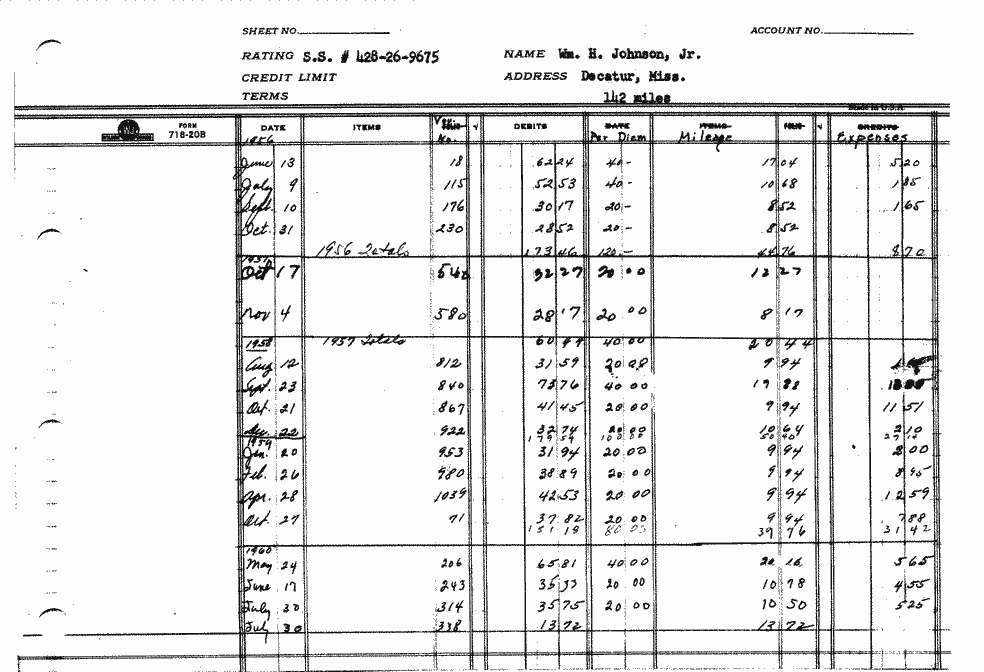 SHEET NO. ACCOUNT NO.
RATING S.S. # 428-26-9675 NAME Wm. H. Johnson, Jr.
CREDIT LIMIT ADDRESS Decatur, Miss.
TERMS 142 miles
FORM 718-20B DATE ITEMS Vou. No. √ DEBITS DATE Per Diem ITEMS Mileage FOLIO √ CREDITS Expenses
1956
June 13 18 62 24 40- 17 04 5 20
July 9 115 52 53 40- 10 68 1 85
Sept. 10 176 30 17 20- 8 52 1 65
Oct. 31 230 28 52 20- 8 52
1956 Totals 173 46 120.- 44 76 8 70
1957
Oct 17 540 32 27 20 00 12 27
Nov 4 580 28 17 20 00 8 17
1957 Totals 60 44 40 00 20 44
1958
Aug 12 812 31 59 20 00 9 94
Sept. 23 840 73 76 40 00 19 88
Oct. 21 867 41 45 20 00 9 94 11 51
Dec. 22 922 32 74 20 00 10 64 2 10
179 54 100 00 50 40 29 14
1959
Jan. 20 953 31 94 20 00 9 94 2 00
Feb. 26 980 38 89 20 00 9 94 8 95
Apr. 28 1039 42 53 20 00 9 94 12 59
Oct 27 71 37 82 20 00 9 94 7 88
151 18 80 00 39 76 31 42
1960
May 24 206 65 81 40 00 20 16 5 65
June 17 243 35 33 20 00 10 78 4 55
July 30 314 35 75 20 00 10 50 5 25
July 30 338 13 72 13 72